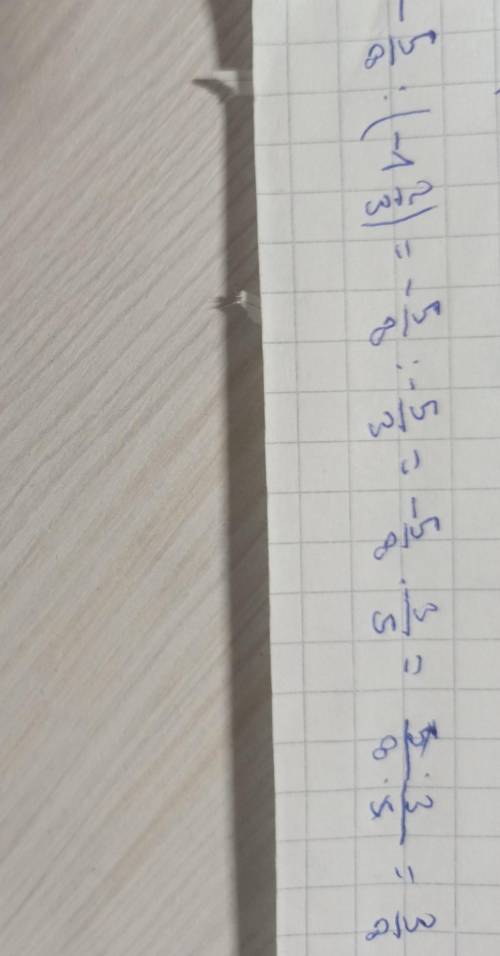 - 5/8 : (-1 2/3) = - 5/8 : - 5/3 = - 5/8 · 3/5 = 5·3/8·5 = 3/8